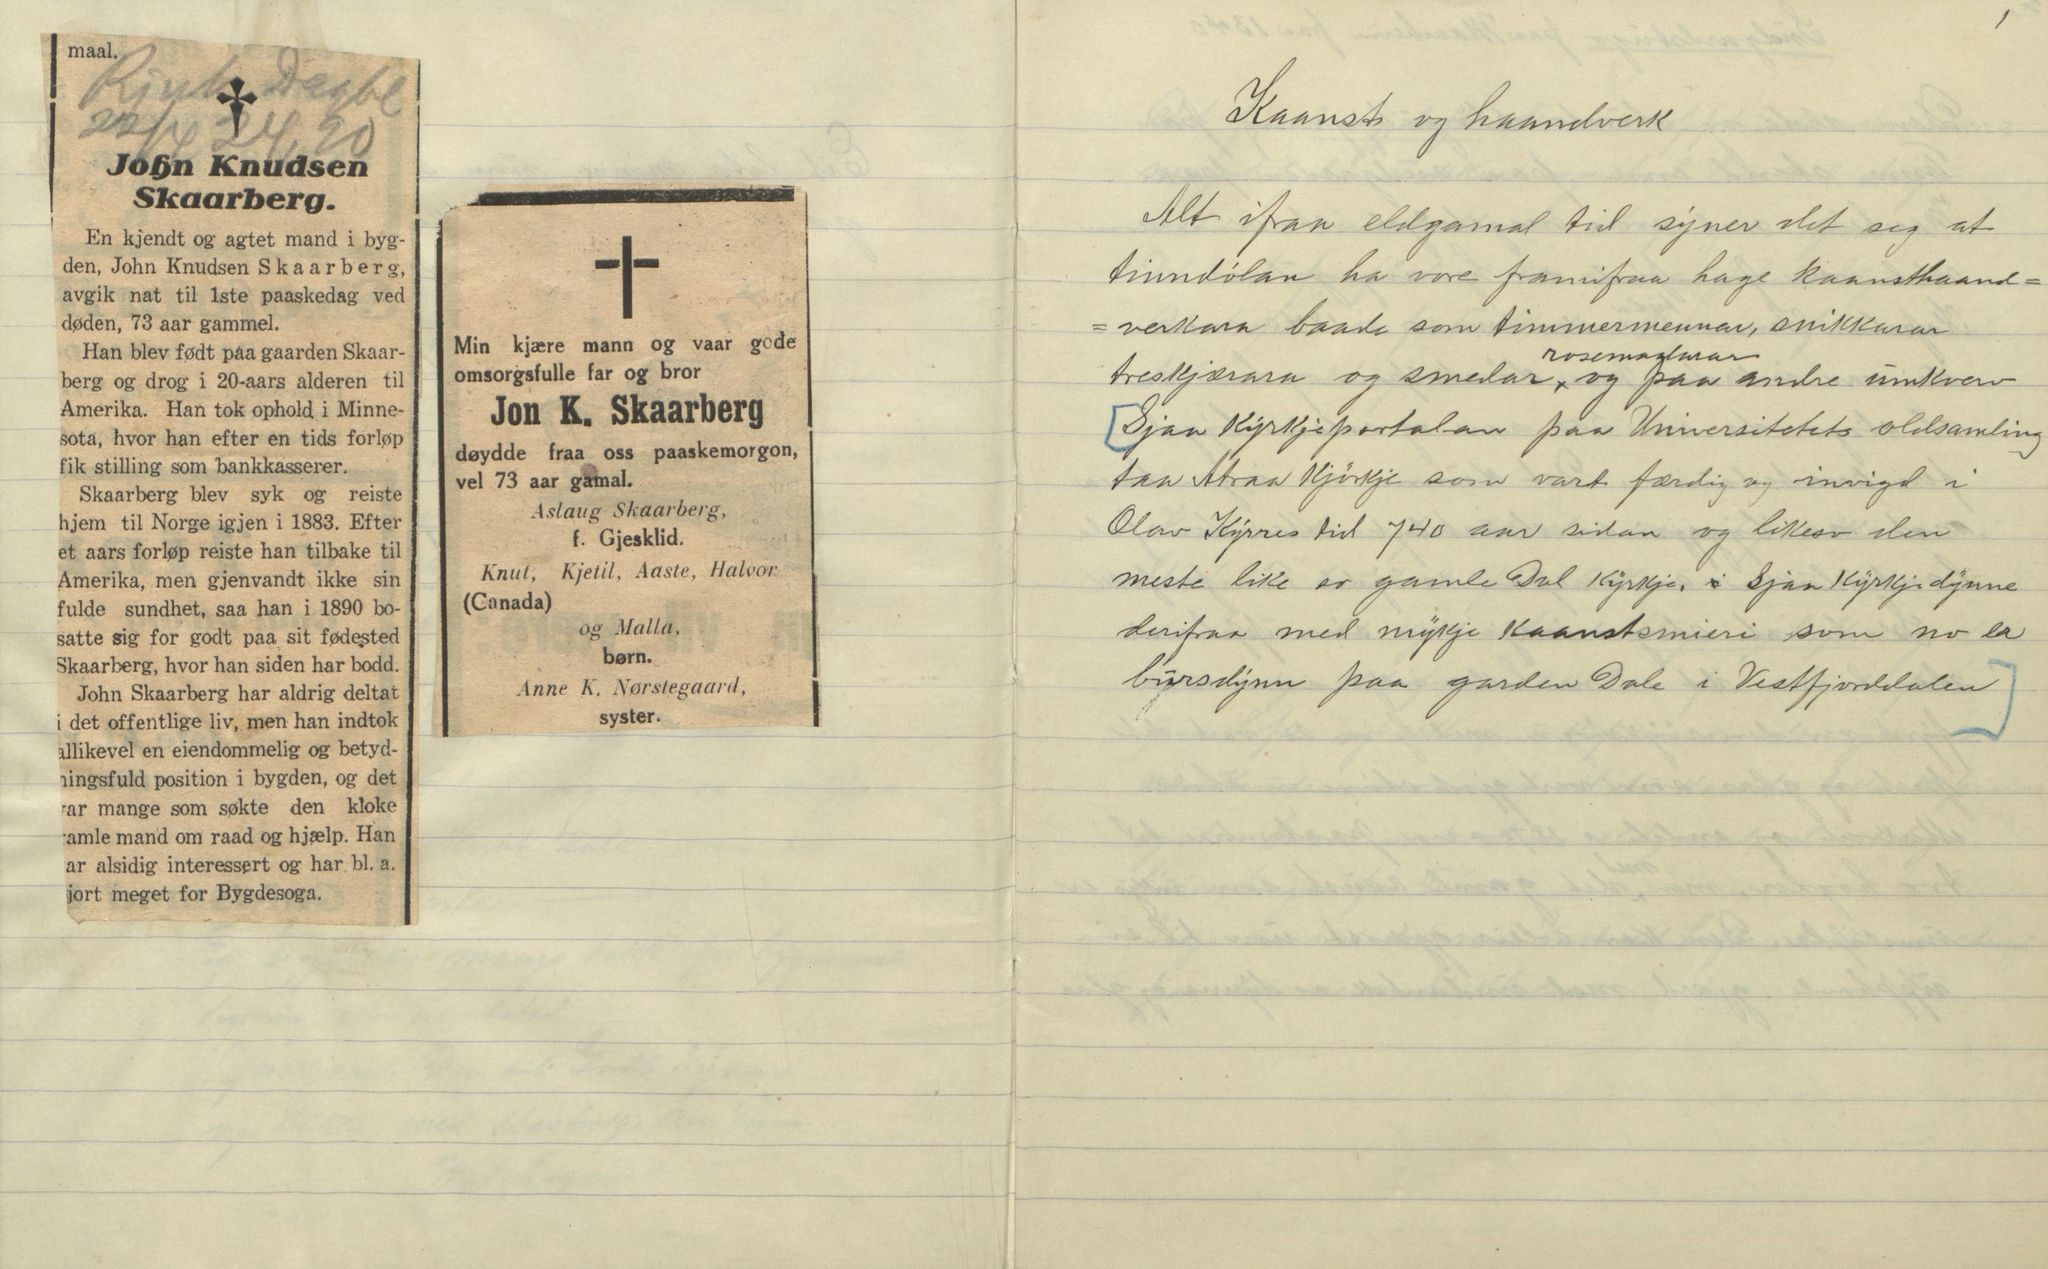 maal.
Rjuk. Dagbl
22/4 24, 20
John Knudsen
Skaarberg.
En kjendt og agtet mand i byg-
den, John Knudsen Skaarberg,
avgik nat til 1ste paaskedag ved
døden, 73 aar gammel.
Han blev født paa gaarden Skaar-
berg og drog i 20-aars alderen til
Amerika. Han tok ophold i Minne-
sota, hvor han efter en tids forløp
fik stilling som bankkasserer.
Skaarberg blev syk og reiste
hjem til Norge igjen i 1883. Efter
et aars forløp reiste han tilbake til
Amerika, men gjenvandt ikke sin
fulde sundhet, saa han i 1890 bo-
satte sig for godt paa sit fødested
Skaarberg, hvor han siden har bodd.
John Skaarberg har aldrig deltat
i det offentlige liv, men han indtok
allikevel en eiendommelig og betyd-
ningsfuld position i bygden, og det
var mange som søkte den kloke
gamle mand om raad og hjælp. Han
ar alsidig interessert og har bl. a.
gjort meget for Bygdesoga.
Min kjære mann og vaar gode
omsorgsfulle far og bror
Jon K. Skaarberg
døydde fraa oss paaskemorgon,
vel 73 aar gamal.
Aslaug Skaarberg,
f. Gjesklid.
Knut, Kjetil, Aaste, Halvor
(Canada)
og Malla,
børn.
Anne K. Nørstegaard,
syster.
1
Kaanst og haandverk
Alt ifraa eldgamal tid syner det seg at
tinndølan ha vore framifraa hage kaansthaand=
=verkara baade som timmermennar, snikkarar
rosemaalarar
treskjærara og smedar x og paa andre umkverv
[Sjaa Kyrkjeportalan paa Universitetets oldsamling
taa Atraa Kjørkje som vart færdig og invigd i
Olav Kyrres tid 740 aar sidan og likeso den
meste like so gamle Dal Kyrkje. Sjaa Kyrkjedynne
derifraa med mykje Kaanstsmieri som no er
bursdynn paa garden Dale i Vestfjorddalen]